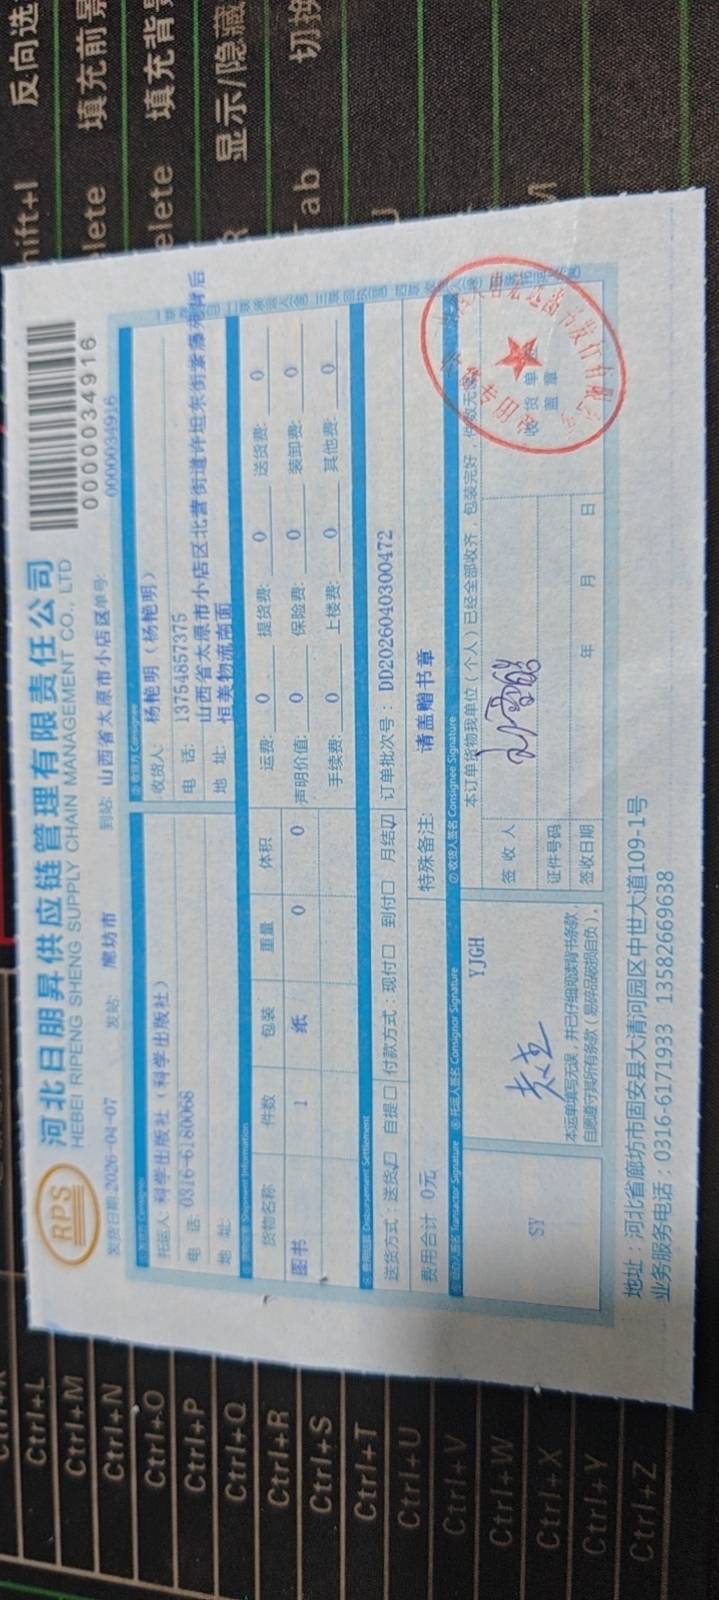 反向选
填充前景
填充背景
显示/隐藏
切换
RPS
河北日朋昇供应链管理有限责任公司
HEBEI RIPENG SHENG SUPPLY CHAIN MANAGEMENT CO., LTD
0000034916
发货日期:2026-04-07 发站: 廊坊市 到站: 山西省太原市小店区 单号: 0000034916
托运人: 科学出版社 (科学出版社)
电 话: 0316-6180066
地 址:
收货人: 杨艳明 (杨艳明)
电 话: 13754857375
地 址: 山西省太原市小店区北营街道许坦东街紫藤苑背后
恒美物流南面
货物名称 件数 包装 重量 体积
图书 1 纸 0 0
运费: 0 提货费: 0 送货费: 0
声明价值: 0 保险费: 0 装卸费: 0
手续费: 0 上楼费: 0 其他费: 0
送货方式: 送货☑ 自提☐ 付款方式: 现付☐ 到付☐ 月结☑ 订单批次号: DD2026040300472
费用合计 0元 特殊备注: 请盖赠书章
Transactor Signature
SY
托运人签名 Consignor Signature
YJGH
本运单填写无误,并已仔细阅读背书条款,
自愿遵守其所有条款(易碎品破损自负)。
收货人签名 Consignee Signature
本订单货物我单位(个人)已经全部收齐,包装完好,件数无误
签 收 人
证件号码
签收日期 年 月 日
收货单位
盖 章
地址:河北省廊坊市固安县大清河园区中世大道109-1号
业务服务电话:0316-6171933 13582669638
Ctrl+L
Ctrl+M
Ctrl+N
Ctrl+O
Ctrl+P
Ctrl+Q
Ctrl+R
Ctrl+S
Ctrl+T
Ctrl+U
Ctrl+V
Ctrl+W
Ctrl+X
Ctrl+Y
Ctrl+Z